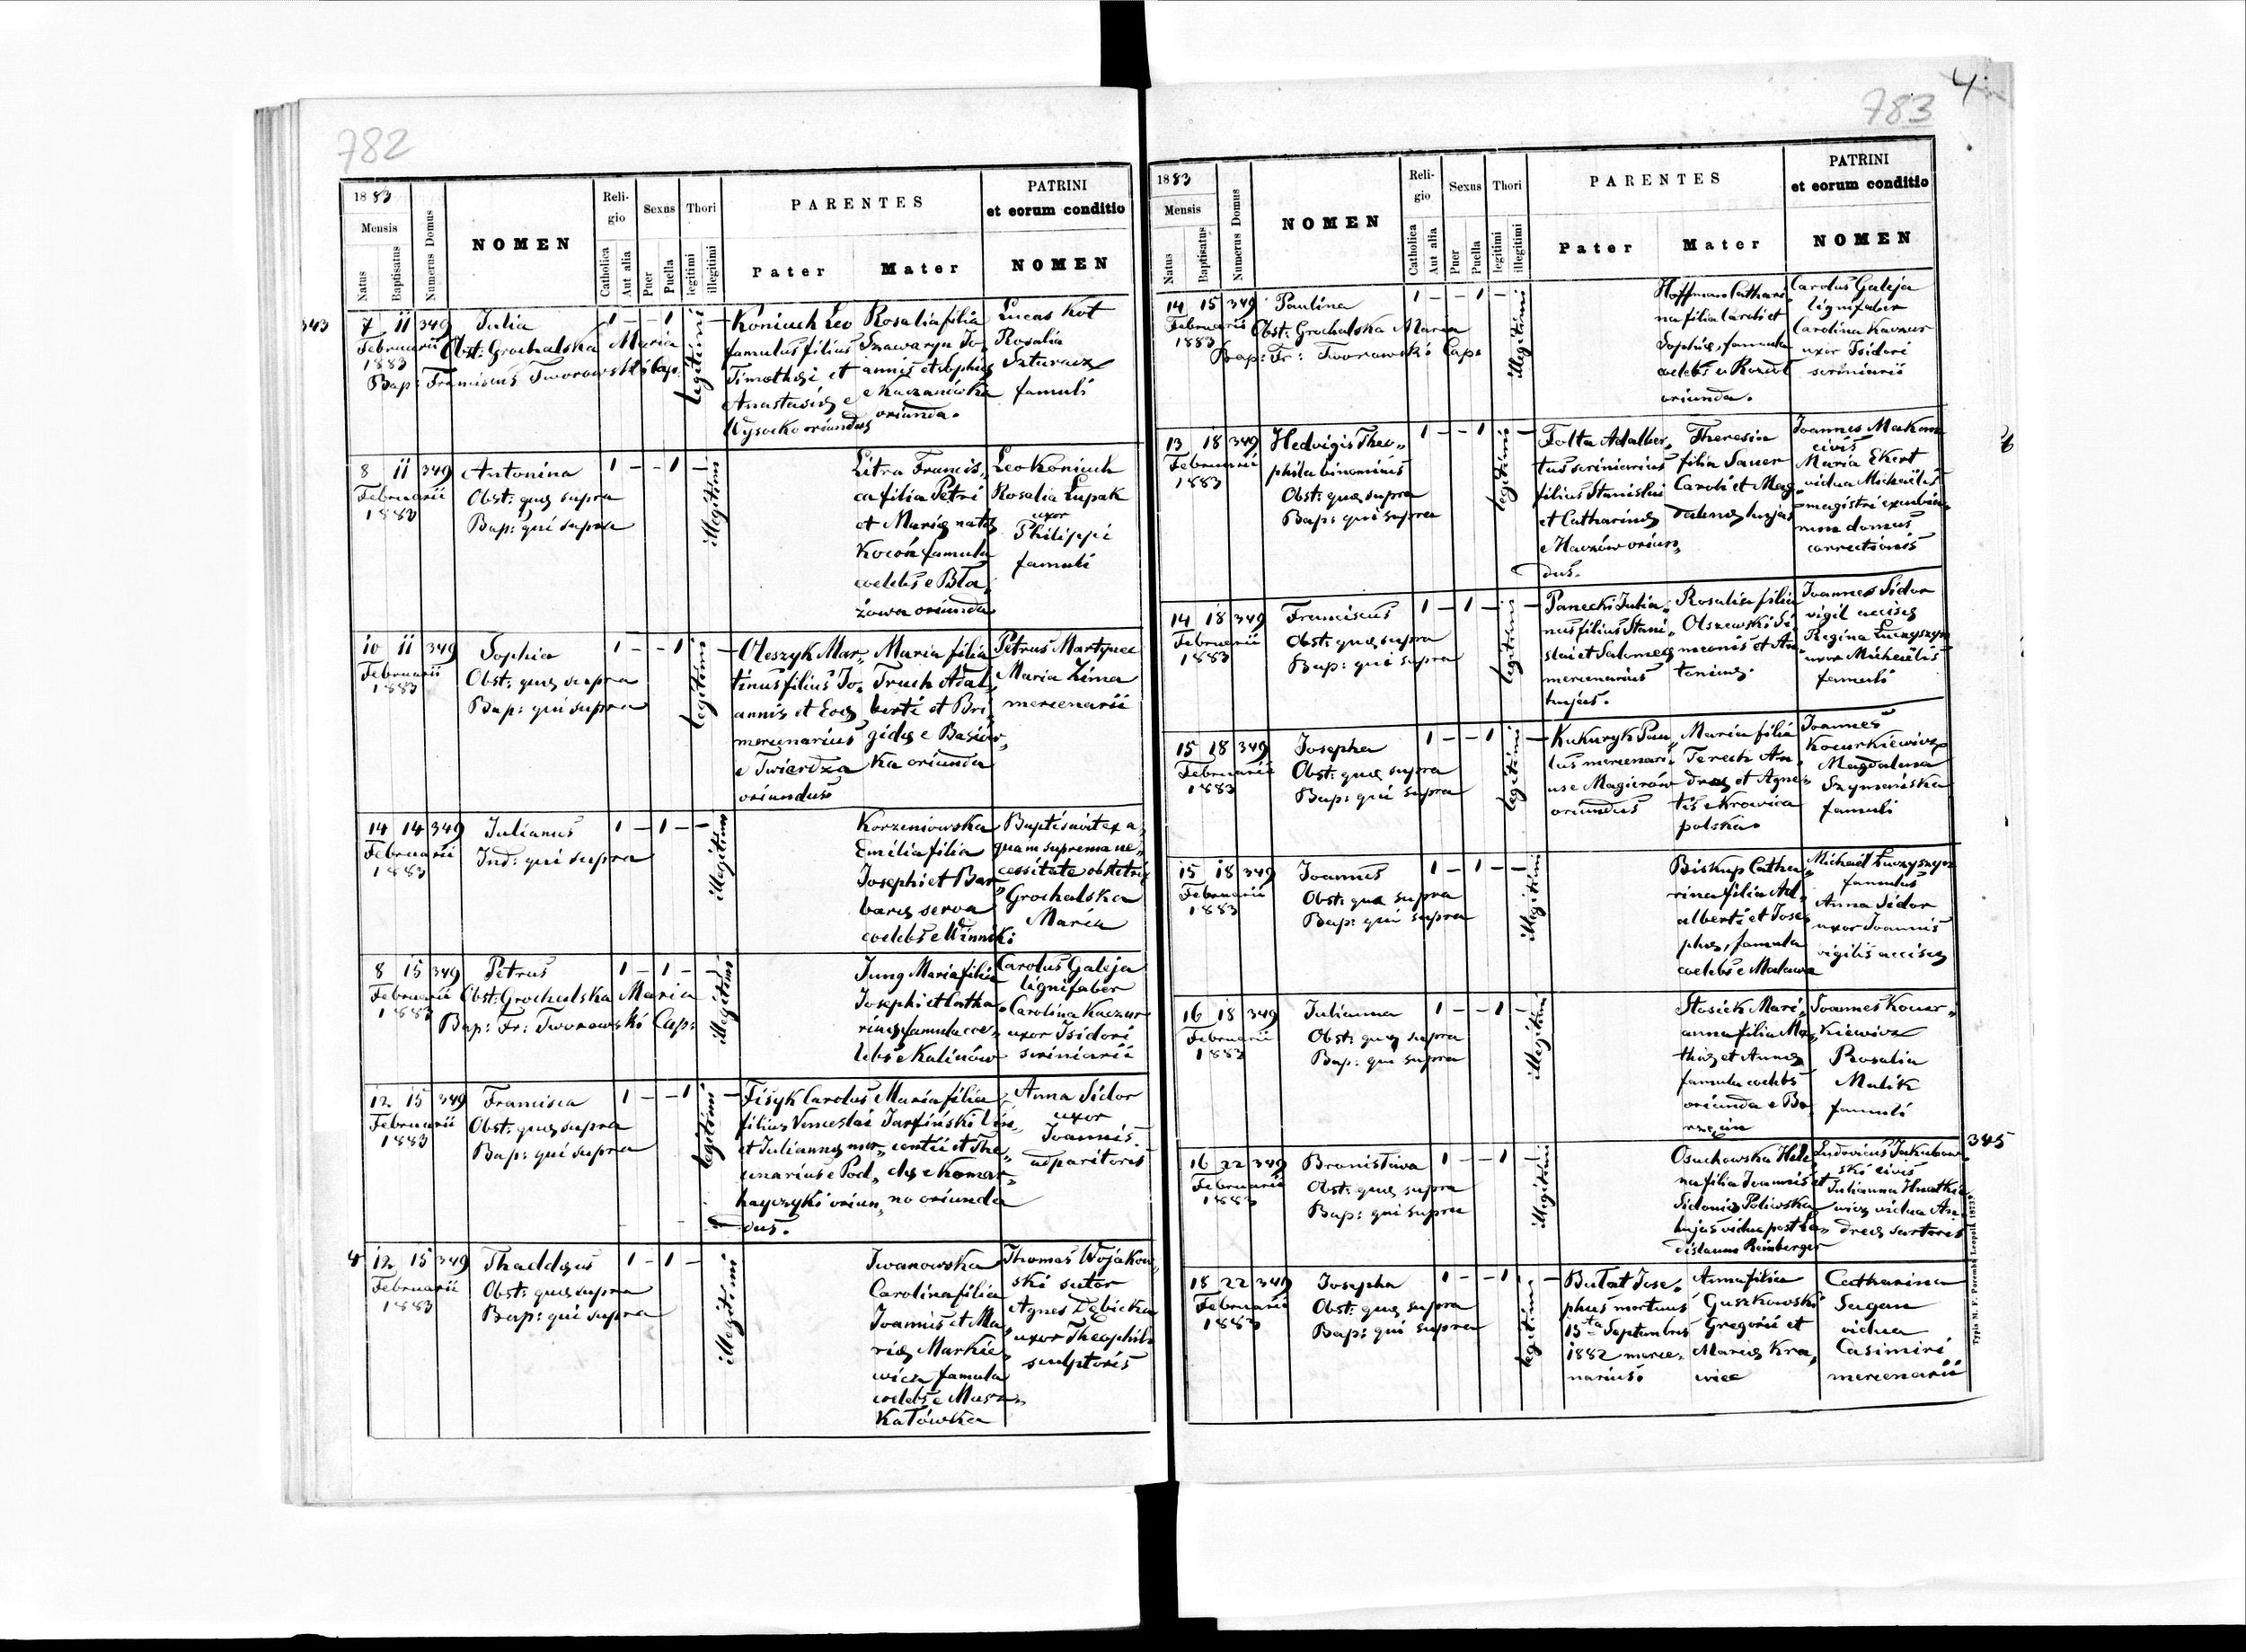 782
1883
Mensis
Natus
Baptisatus
Numerus Domus
NOMEN
Reli-
gio
Catholica
Aut alia
Sexus
Puer
Puella
Thori
legitimi
illegitimi
PARENTES
Pater
Mater
PATRINI
et eorum conditio
NOMEN
343
7 11 349
Februarii
1883
Julia
Obst: Grochalska Maria
Bap: Franciscus Tworowski Cap:
1 - - 1
legitimi
Koniuch Leo
famulus filius
Timothei et
Anastasiæ e
Wysocko oriundus
Rosalia filia
Szawaryn Jo,
annis et Sophiæ
e Kaczanówka
oriunda.
Lucas Kot
Rosalia
Szturacz
famuli
8 11 349
Februarii
1883
Antonina
Obst: quæ supra
Bap: qui supra
1 - - 1 -
illegitimi
Litra Francis,
ca filia Petri
et Mariæ natæ
Kocoń famula
coelebs e Bła,
żowa oriunda
Leo Koniuch
Rosalia Łupak
uxor
Philippi
famuli
10 11 349
Februarii
1883
Sophia
Obst: quæ supra
Bap: qui supra
1 - - 1
legitimi
Oleszyk Mar,
tinus filius Jo,
annis et Evæ
mercenarius
e Twierdza
oriundus
Maria filia
Truch Adal,
berti et Bri
gidæ e Basiów,
ka oriunda
Petrus Martynec
Maria Zima
mercenarii
14 14 349
Februarii
1883
Julianus
Ind: qui supra
1 - 1 - -
illegitimi
Korzeniowska
Emilia filia
Josephi et Bar
baræ serva
coelebs e Winniki
Baptisavit ex a,
quam suprema ne,
cessitate obstetrix
Grochalska
Maria
8 15 349
Februarii
1883
Petrus
Obst: Grochalska Maria
Bap: Fr: Tworowski Cap:
1 - 1 - -
illegitimi
Jung Maria filia
Josephi et Catha
rinæ famula coe,
lebs e Kalinów
Carolus Galeja
lignifaber
Carolina Kaczur
uxor Isidori
scriniarii
12 15 349
Februarii
1883
Francisca
Obst: quæ supra
Bap: qui supra
1 - - 1
legitimi
Fisyk Carolus
filius Venceslai
et Juliannæ mer,
cenarius e Pod,
hayczyki oriun,
dus.
Maria filia
Jarfiński Vin,
centii et The,
clæ e Komar,
no oriunda
Anna Sidor
uxor
Joannis
adparitoris
4
12 15 349
Februarii
1883
Thaddæus
Obst: quæ supra
Bap: qui supra
1 - 1 -
illegitimi
Iwanowska
Carolina filia
Joannis et Ma,
riæ Markie,
wicz famula
coelebs e Musz,
katówka
Thomas Wojakow,
ski sutor
Agnes Dębicka
uxor Theophili
sculptoris
783
4
1883
Mensis
Natus
Baptisatus
Numerus Domus
NOMEN
Reli-
gio
Catholica
Aut alia
Sexus
Puer
Puella
Thori
legitimi
illegitimi
PARENTES
Pater
Mater
PATRINI
et eorum conditio
NOMEN
14 15 349
Februarii
1883
Paulina
Obst: Grochalska Maria
Bap: Fr: Tworowski Cap:
1 - - 1 -
illegitimi
Hoffman Cathari
na filia Caroli et
Sophiæ, famula
coelebs e Rozwół
oriunda.
Carolus Galeja
lignifaber
Carolina Kaczur
uxor Isidori
scriniarii
13 18 349
Februarii
1883
Hedvigis Theo,,
phila binominis
Obst: quæ supra
Bap: qui supra
1 - - 1
legitimi
Folta Adalber,
tus scriniarius
filius Stanislai
et Catharinæ
e Haczów oriun,
dus.
Theresia
filia Sauer
Caroli et Mag
dalenæ hujas
Joannes Makom
civis
Maria Ekert
vidua Michaëlis
magistri excubia,
rum domus
correctionis
14 18 349
Februarii
1883
Franciscus
Obst: quæ supra
Bap: qui supra
1 - 1 -
legitimi
Panecki Julia,
nus filius Stani,
slai et Salomeæ
mercenarius
hujas.
Rosalia filia
Olszewski Si,
meonis et An,
toninæ.
Joannes Sidor
vigil accisæ
Regina Łuczyszyn
uxor Michaëlis
famuli
15 18 349
Februarii
1883
Josepha
Obst: quæ supra
Bap: qui supra
1 - - 1
legitimi
Kukuryk Pau,,
lus mercenari,
us e Magierów
oriundus
Maria filia
Terech An,
dreæ et Agne,
tis e Krowica
polska.
Joannes
Kocurkiewicz
Magdalena
Szymańska
famuli
15 18 349
Februarii
1883
Joannes
Obst: quæ supra
Bap: qui supra
1 - 1 - -
illegitimi
Biskup Catha,
rina filia Ad,
alberti et Jose
phæ, famula
coelebs e Malawa
Michaël Łuczyszyn
famulus
Anna Sidor
uxor Joannis
vigilis accisæ
16 18 349
Februarii
1883
Julianna
Obst: quæ supra
Bap: qui supra
1 - - 1 -
illegitimi
Stasiek Mari,
anna filia Ma,
thiæ et Annæ
famula coelebs
oriunda e Bo
Joannes Kocur,
kiewicz
Rosalia
Malik
famuli
385
16 22 349
Februarii
1883
Bronisława
Obst: quæ supra
Bap: qui supra
1 - - 1 -
illegitimi
Osuchowska Hele
na filia Joannis et
Sidoniæ Poliwska
hujas vidua post La,
dislaum Reinberger
Ludovicus Jakubow
ski civis
Julianna Hnatkie
wicz vidua An,
dreæ sartoris
18 22 349
Februarii
1883
Josepha
Obst: quæ supra
Bap: qui supra
1 - - 1
legitimi
Butat Jose,
phus mortuus
15ta Septembris
1882 merce,
narius.
Anna filia
Guszkowski
Gregorii et
Mariæ Kra,
wiec
Catharina
Sagan
vidua
Casimiri
mercenarii
Typis M. F. Poremba Leopoli 1873